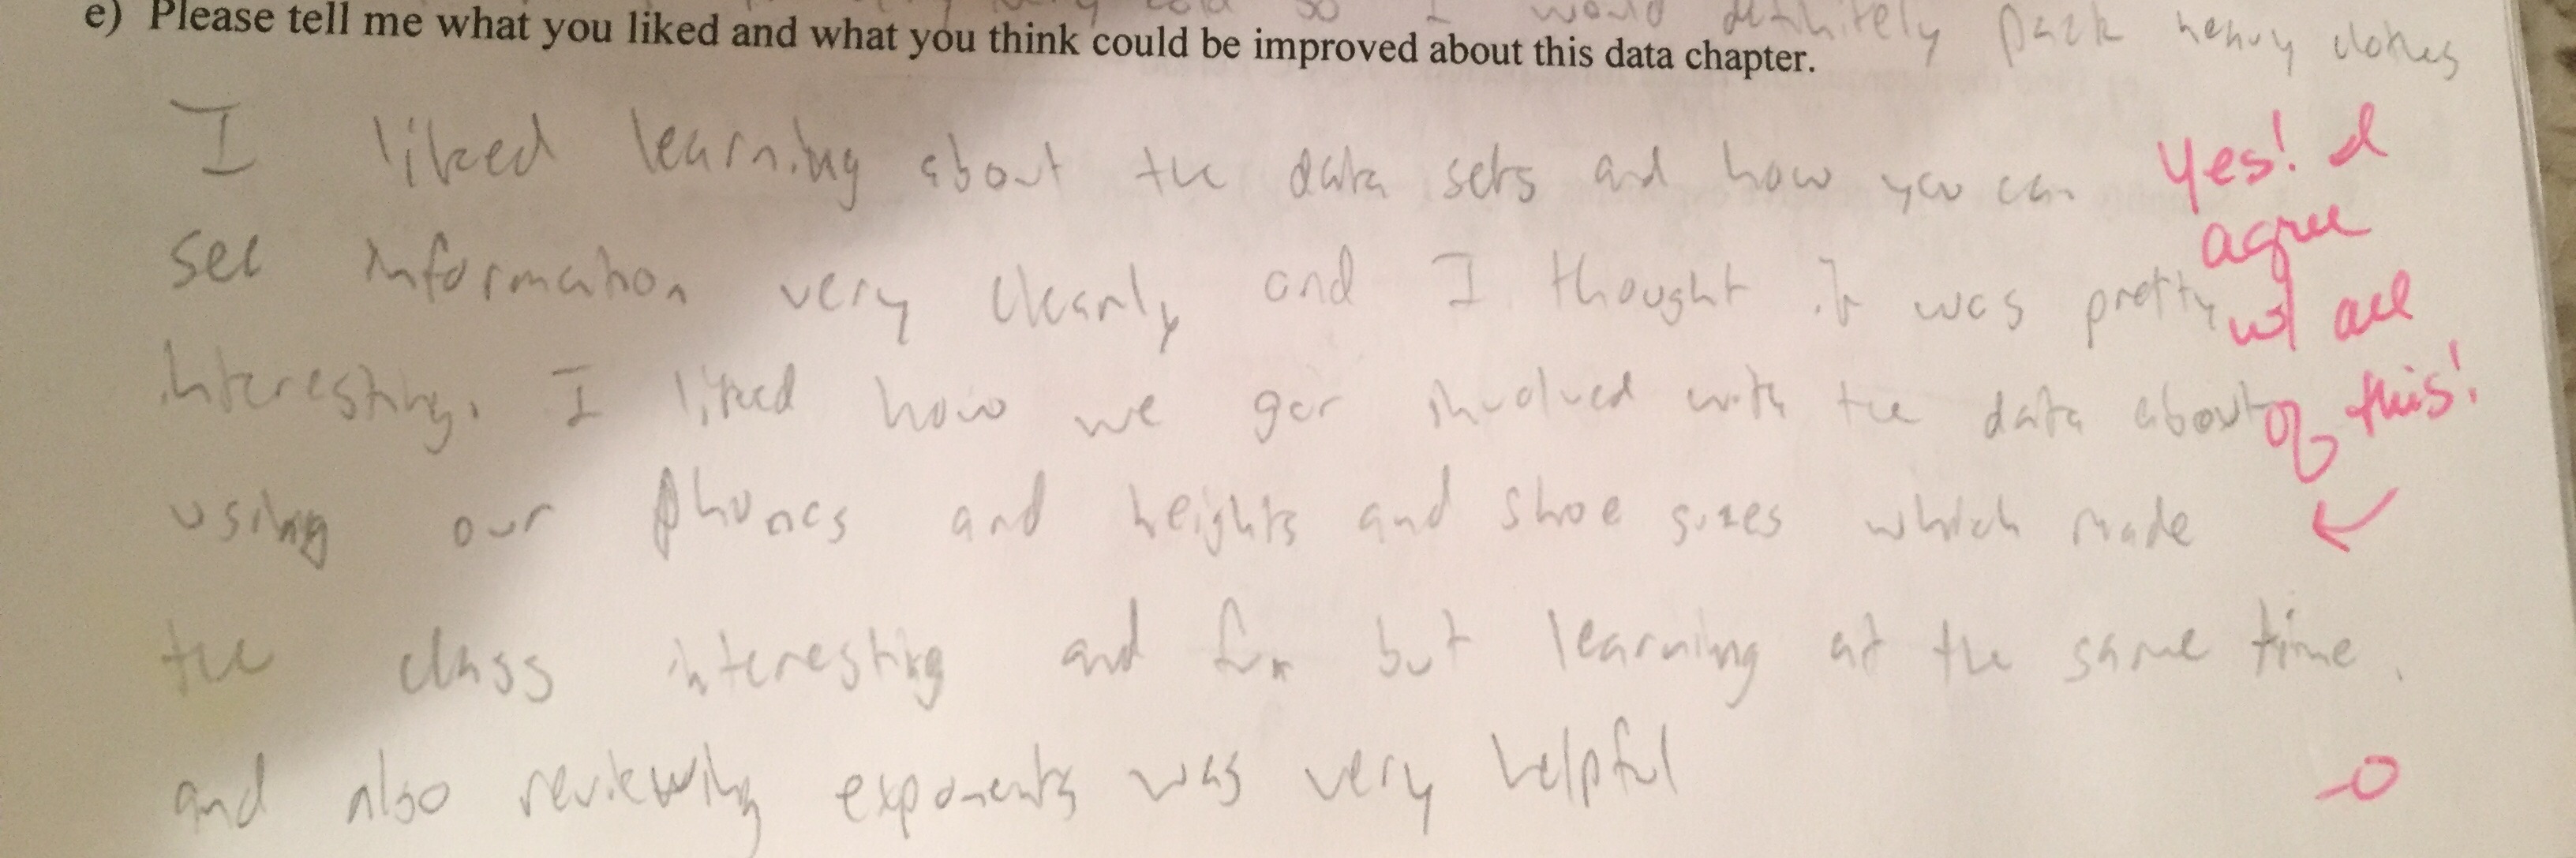 so I would definitely pack heavy clothes
e) Please tell me what you liked and what you think could be improved about this data chapter.
I liked learning about the data sets and how you can
see information very clearly and I thought it was pretty
interesting. I liked how we got involved with the data about
using our phones and heights and shoe sizes which made
the class interesting and fun but learning at the same time.
and also reviewing exponents was very helpful
Yes! I
agree
w/ all
of this!
-0